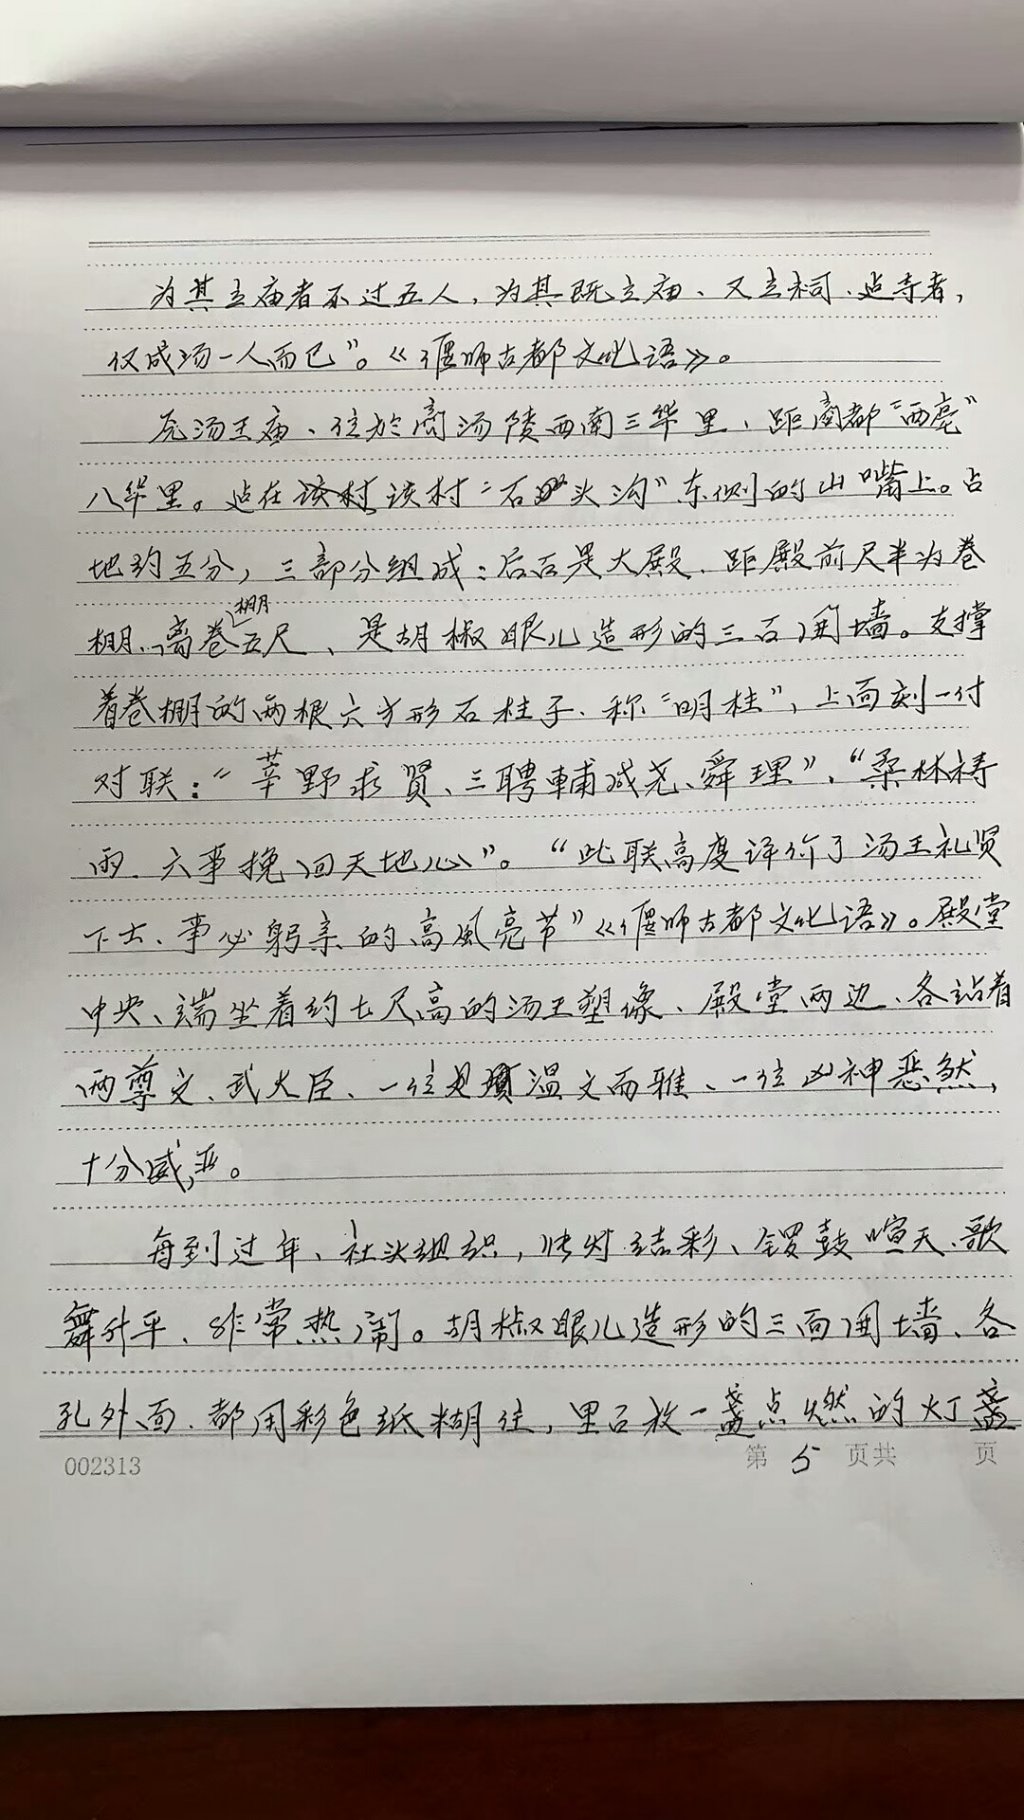 为其立庙者不过五人，为其既立庙、又立祠、造寺者，
仅成汤一人而已”。《偃师古都文化语》。
汤王庙、位於商汤陵西南三华里、距商都“西亳”
八华里。造在该村“石头沟”东侧的山嘴上。占
地约五分，三部分组成：后面是大殿、距殿前尺半为卷
棚、离卷棚五尺、是胡椒眼儿造形的三面围墙。支撑
着卷棚的两根六方形石柱子、称“明柱”，上面刻一付
对联：“莘野求贤、三聘輔成尧、舜理”、“桑林祷
雨、六事挽回天地心”。“此联高度评价了汤王礼贤
下士、事必躬亲的高風亮节”《偃师古都文化语》。殿堂
中央、端坐着约七尺高的汤王塑像、殿堂两边、各站着
两尊文、武大臣、一位温文而雅、一位凶神恶然，
十分威严。
每到过年、社头组织，张灯结彩、锣鼓喧天、歌
舞升平、非常热闹。胡椒眼儿造形的三面围墙、各
孔外面、都用彩色纸糊住，里面放一盏点燃的灯盏
002313
第 5 页共 页